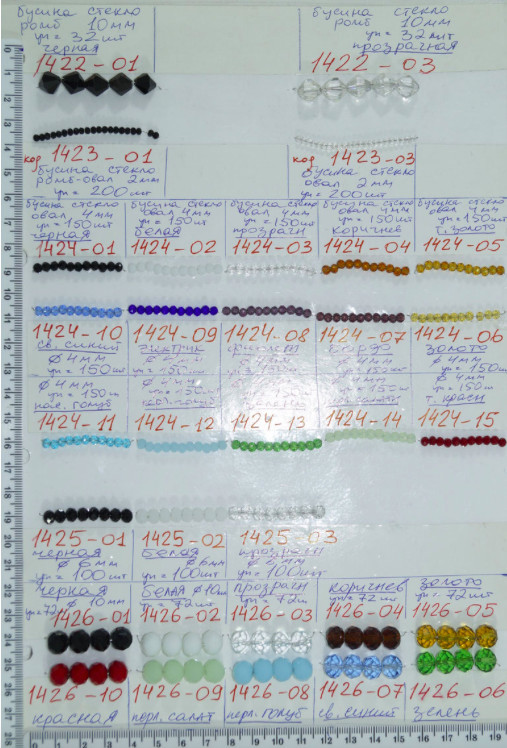 бусина стекло
ромб 10мм
уп = 32 шт
черная
1422-01
бусина стекло
ромб 10мм
уп = 32 шт
прозрачная
1422-03
код 1423-01
бусина стекло
ромб-овал 2мм
уп = 200 шт
код 1423-03
бусина стекло
овал 2мм
уп = 200 шт
бусина стекло
овал 4мм
уп = 150 шт
черная
1424-01
бусина стекло
овал 4мм
уп = 150 шт
белая
1424-02
бусина стекло
овал 4мм
уп = 150 шт
прозрачн
1424-03
бусина стекло
овал 4мм
уп = 150 шт
коричнев
1424-04
бусина стекло
овал 4мм
уп = 150 шт
т. золото
1424-05
1424-10
св. синий
ф 4мм
уп = 150 шт
1424-09
электрик
1424-08
1424-07
бордо
1424-06
золото
ф 4мм
уп = 150 шт
ф 4мм
уп = 150 шт
1424-11
1424-12
1424-13
1424-14
ф 4мм
уп = 150 шт
т. красн
1424-15
1425-01
черная
ф 6мм
уп = 100 шт
1425-02
белая
ф 6мм
уп = 100 шт
1425-03
прозрачн
ф 6мм
уп = 100 шт
черная
уп = 72 ф 10мм
1426-01
белая ф 10мм
уп = 72 шт
1426-02
прозрачн
уп = 72 ш
1426-03
коричнев
уп = 72 шт
1426-04
золото
уп = 72 шт
1426-05
1426-10
красная
1426-09
перл. салат
1426-08
перл. голуб
1426-07
св. синий
1426-06
зелень